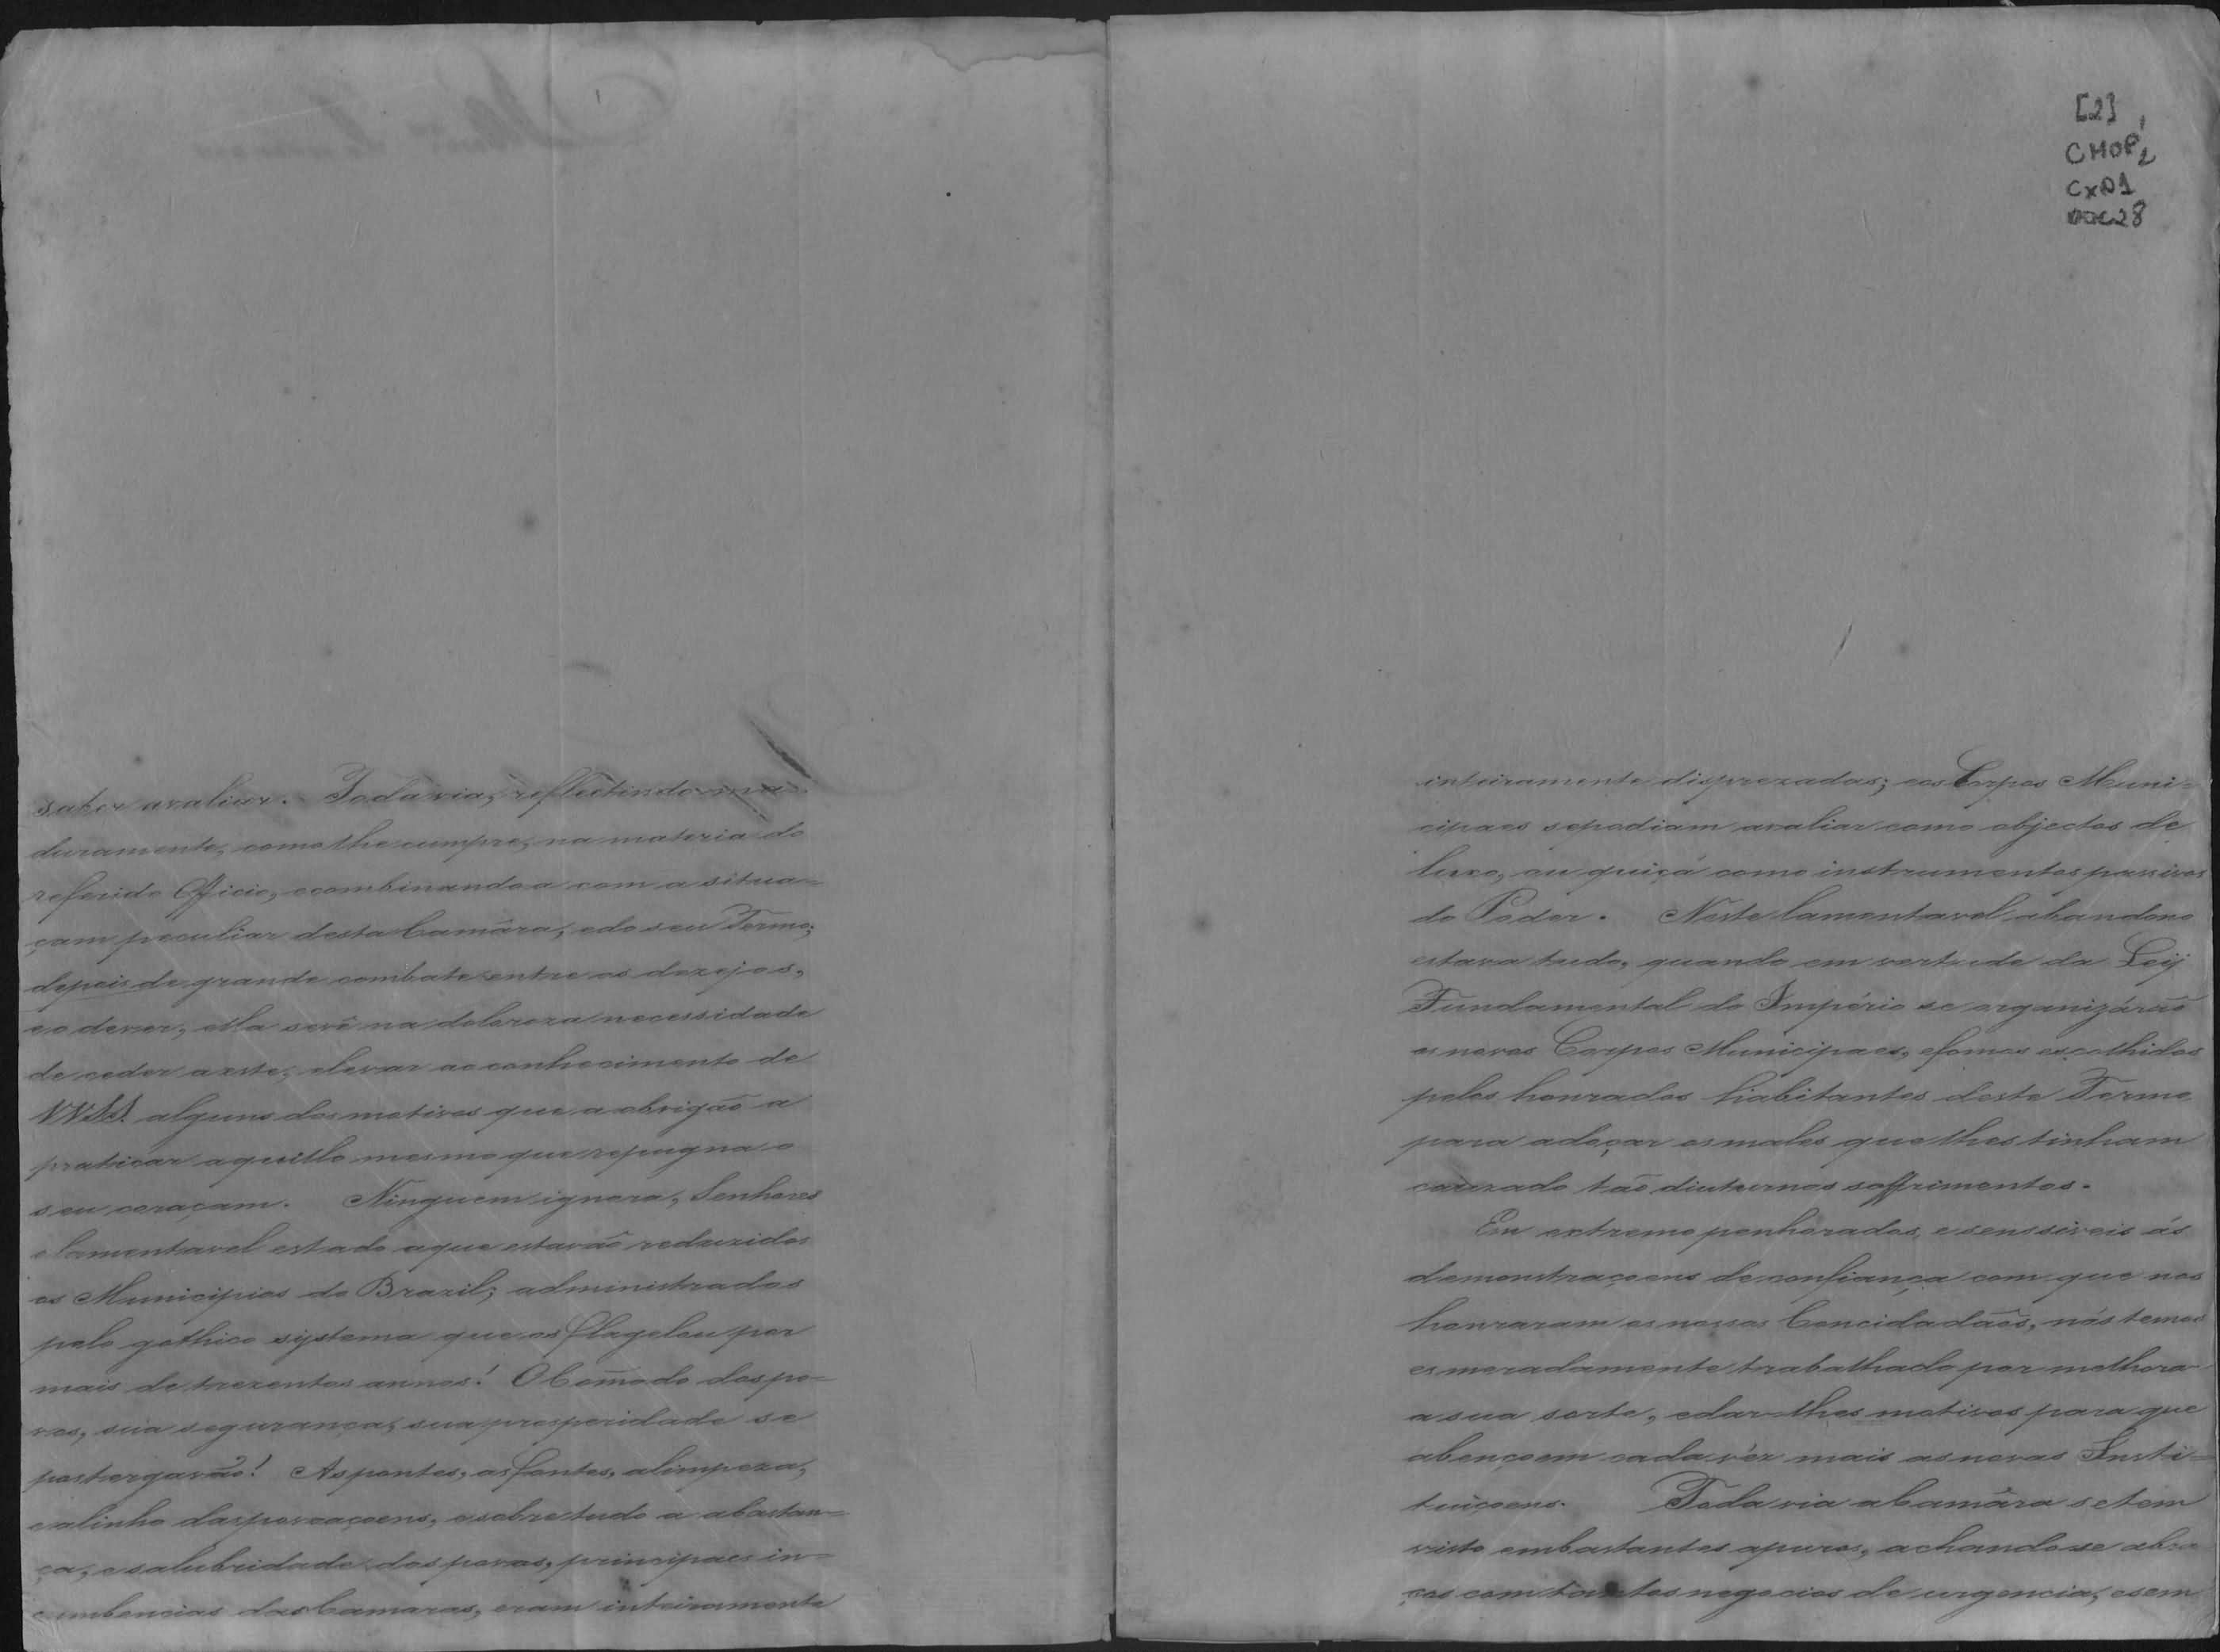 saber avaliar. Todavia, reflectindo ma-
duramente, como lhe cumpre, na materia do
referido Officio, ecombinandoa com a situa=
çam peculiar desta Camára, edo seu Termo;
depois de grande combate entre os dezejos,
eo dever, ella sevê na doloroza necessidade
de ceder aeste; elevar ao conhecimento de
VV.SS. alguns dos motivos que a obrigaõ a
praticar aquillo mesmo que repugna o
seu coraçam. Ninguem ignora, Senhores
o lamentavel estado aque estavaõ reduzidos
os Municipios do Brazil; administrados
pelo gothico systema que os flagelou por
mais de trezentos annos! O Com̃odo dos po=
vos, sua segurança, sua prosperidade se
postergavaõ! As pontes, as fontes, alimpeza,
ealinho das povoaçoens, esobre tudo a abastan=
ça, e salubridade dos povos, principaes in=
cumbencias das Camaras, eram inteiramente
[2]
CMOP
Cx01
DOC28
inteiramente disprezadas; eos Corpos Muni=
cipaes sepodiam avaliar como objectos de
luxo, ou quiçá como instrumentos passivos
do Poder. Neste lamentavel abandono
estava tudo, quando em vertude da Leÿ
Fundamental do Império se organizáraõ
os novos Corpos Municipaes, efomos escolhidos
pelos honrados habitantes deste Termo
para adoçar os males que lhes tinham
cauzado taõ diuturnos soffrimentos.
Em extremo penhorados, e senssiveis ás
demonstraçoens de confiança com que nos
honraram os nossos Concidadaõs, nós temos
esmeradamente trabalhado por melhorar
a sua sorte, edar-lhes motivos para que
abençoem cada véz mais as novas Insti=
tuiçoens. Todavia a Camára setem
visto embastantes apuros, achandose abra-
ços com tantos negocios de urgencia, esem